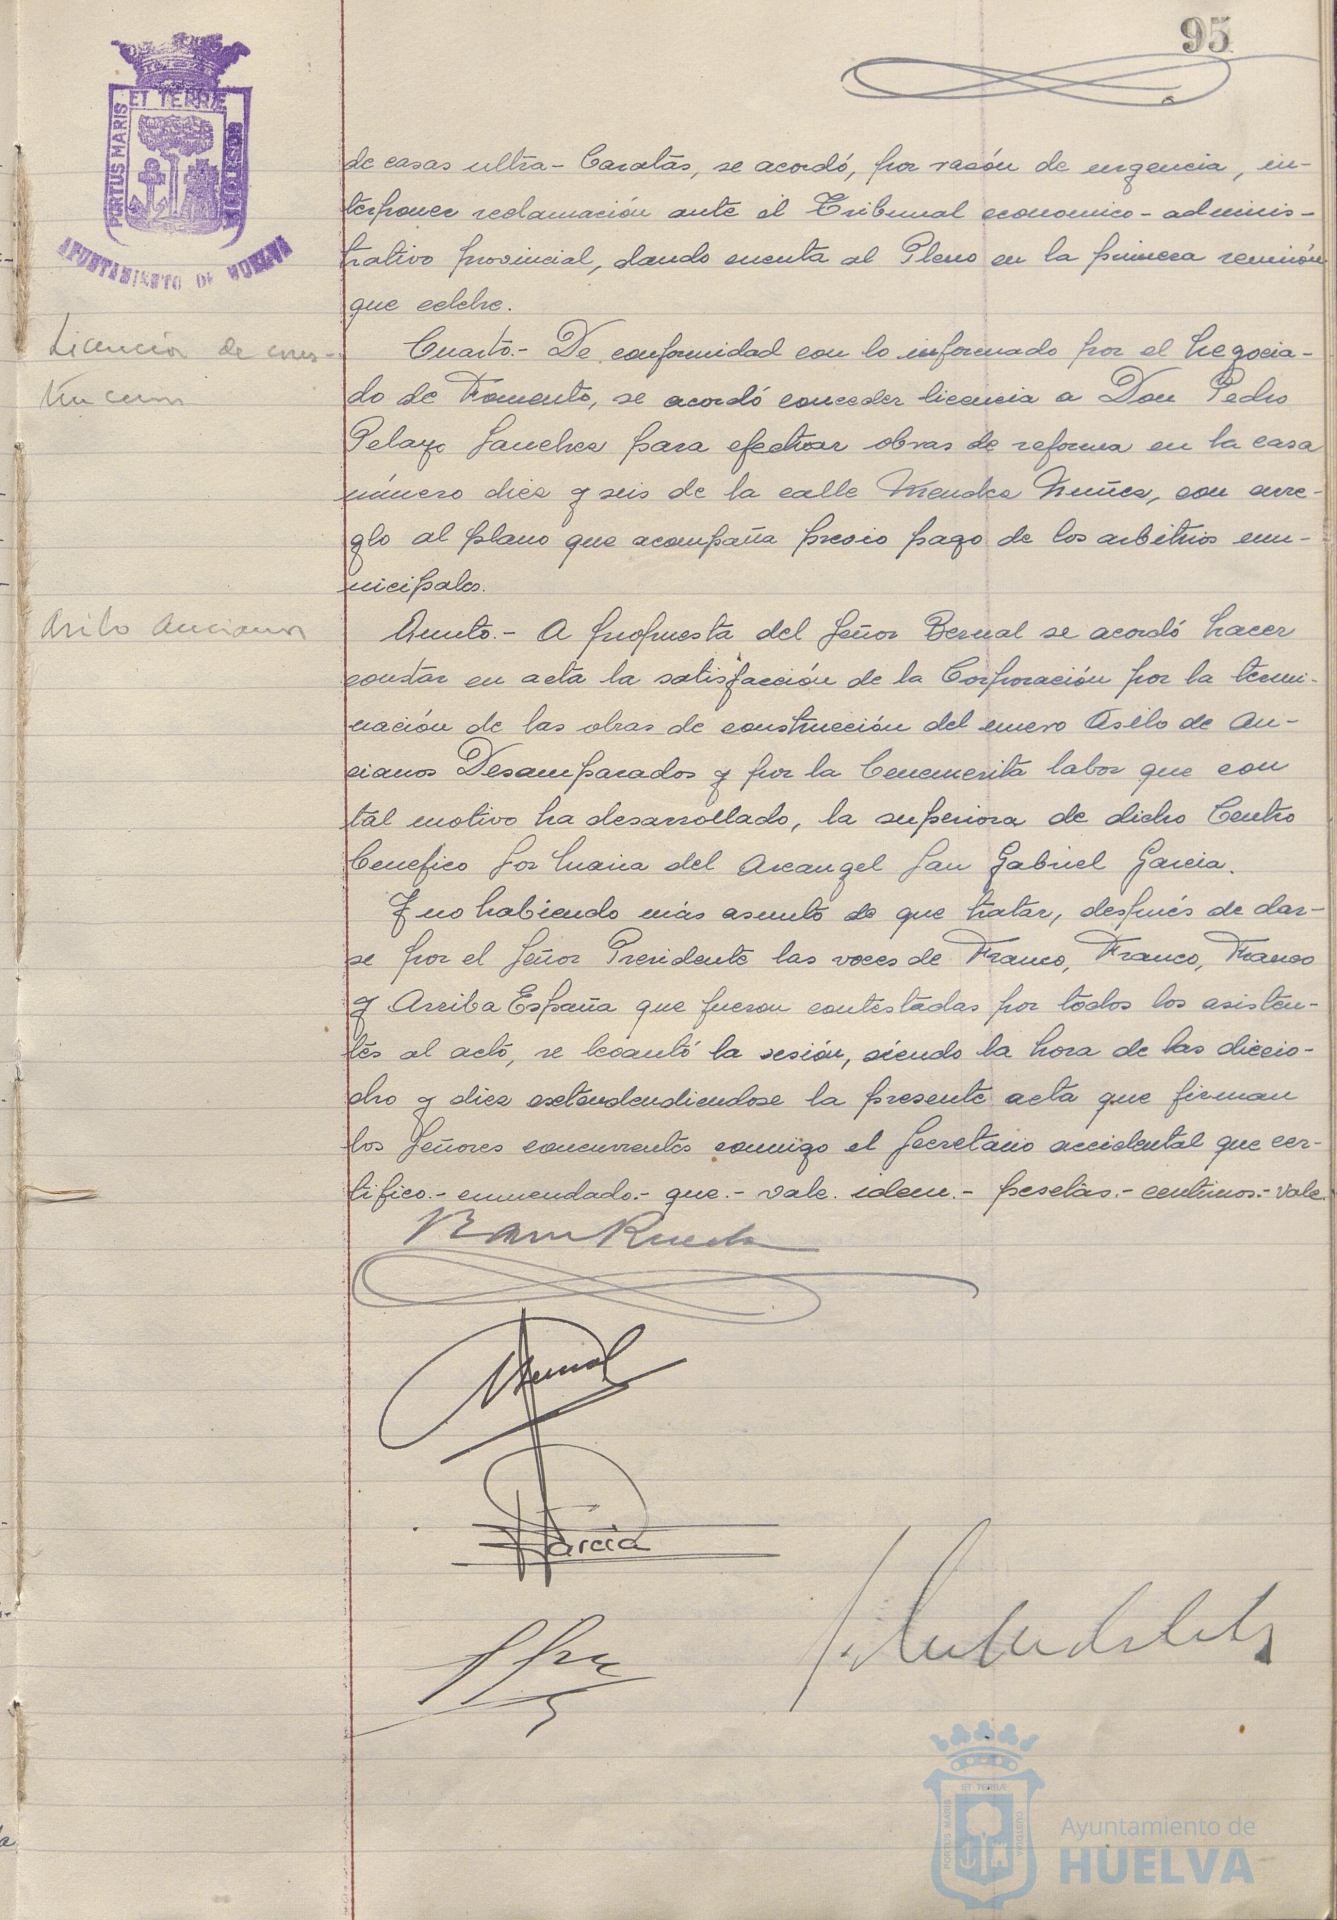 95
PORTUS MARIS
ET TERRÆ
AYUNTAMIENTO DE HUELVA
de casas ultra-baratas, se acordó, por razón de urgencia, in-
terponer reclamación ante el Tribunal economico-adminis-
trativo provincial, dando cuenta al Pleno en la primera reunión
que celebre.
Licencia de cons-
trucción
Cuarto.- De conformidad con lo informado por el Negocia-
do de Fomento, se acordó conceder licencia a Don Pedro
Pelayo Sanchez para efectuar obras de reforma en la casa
número diez y seis de la calle Mendez Nuñez, con arre-
glo al plano que acompaña previo pago de los arbitrios mu-
nicipales.
Asilo Ancianos
Quinto.- A propuesta del Señor Bernal se acordó hacer
constar en acta la satisfacción de la Corporación por la termi-
nación de las obras de construcción del nuevo Asilo de An-
cianos Desamparados y por la benemerita labor que con
tal motivo ha desarrollado, la superiora de dicho Centro
benefico Sor Maria del Arcangel San Gabriel Garcia.
Y no habiendo más asunto de que tratar, después de dar-
se por el Señor Presidente las voces de Franco, Franco, Franco
y Arriba España que fueron contestadas por todos los asisten-
tes al acto, se levantó la sesión, siendo la hora de las diecio-
cho y diez extendendiendose la presente acta que firman
los Señores concurrentes conmigo el Secretario accidental que cer-
tifico.- enmendado.- que.- vale. idem.- pesetas.- centimos.- vale.
Bernal
Garcia
PORTUS MARIS
ET TERRÆ
CUSTODIA
Ayuntamiento de
HUELVA